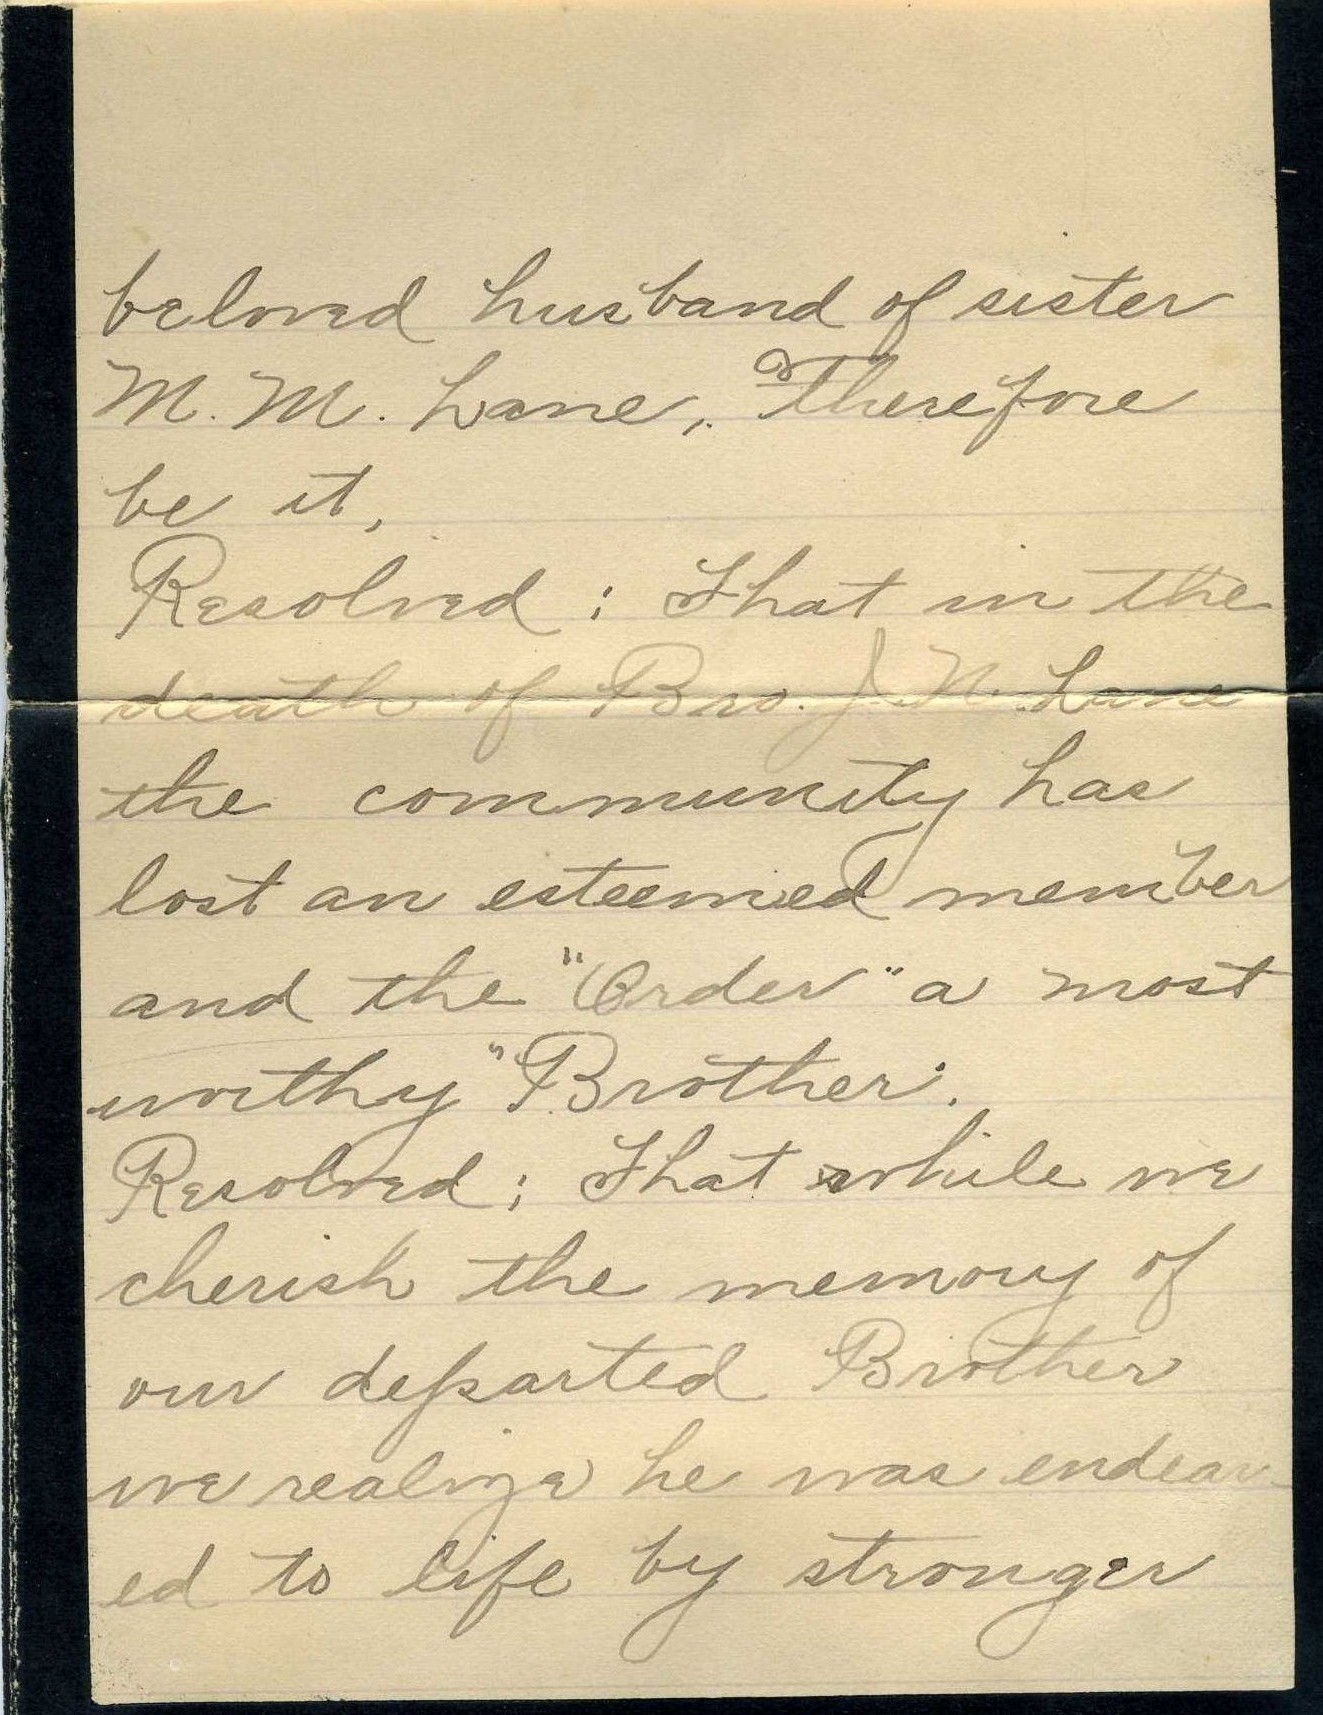 beloved husband of sister
M. M. Lane, Therefore
be it,
Resolved: That in the
death of Bro. J. N. Lane
the community has
lost an esteemed member
and the "Order" a most
worthy "Brother".
Resolved; That while we
cherish the memory of
our departed Brother
we realize he was endear
ed to life by stronger